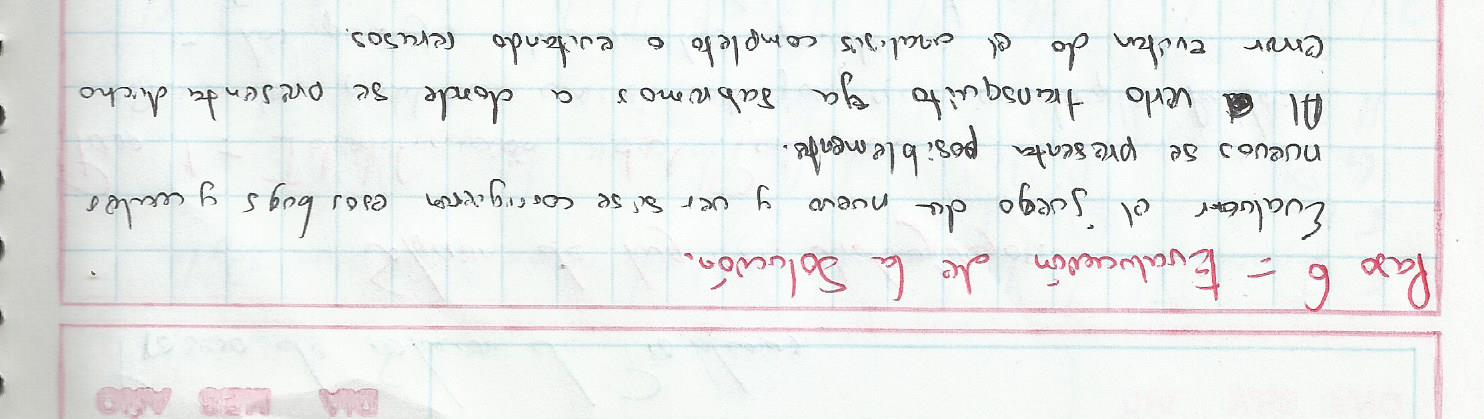 DIA MES AÑO
Paso 6 = Evaluación de la solución.
Evaluar el juego de nuevo y ver si se corrigieron esos bugs y cuales
nuevos se presenta posiblemente.
Al verlo transquito ya sabremos a donde se presenta dicho
error evitando el analisis completo o evitando recursos.